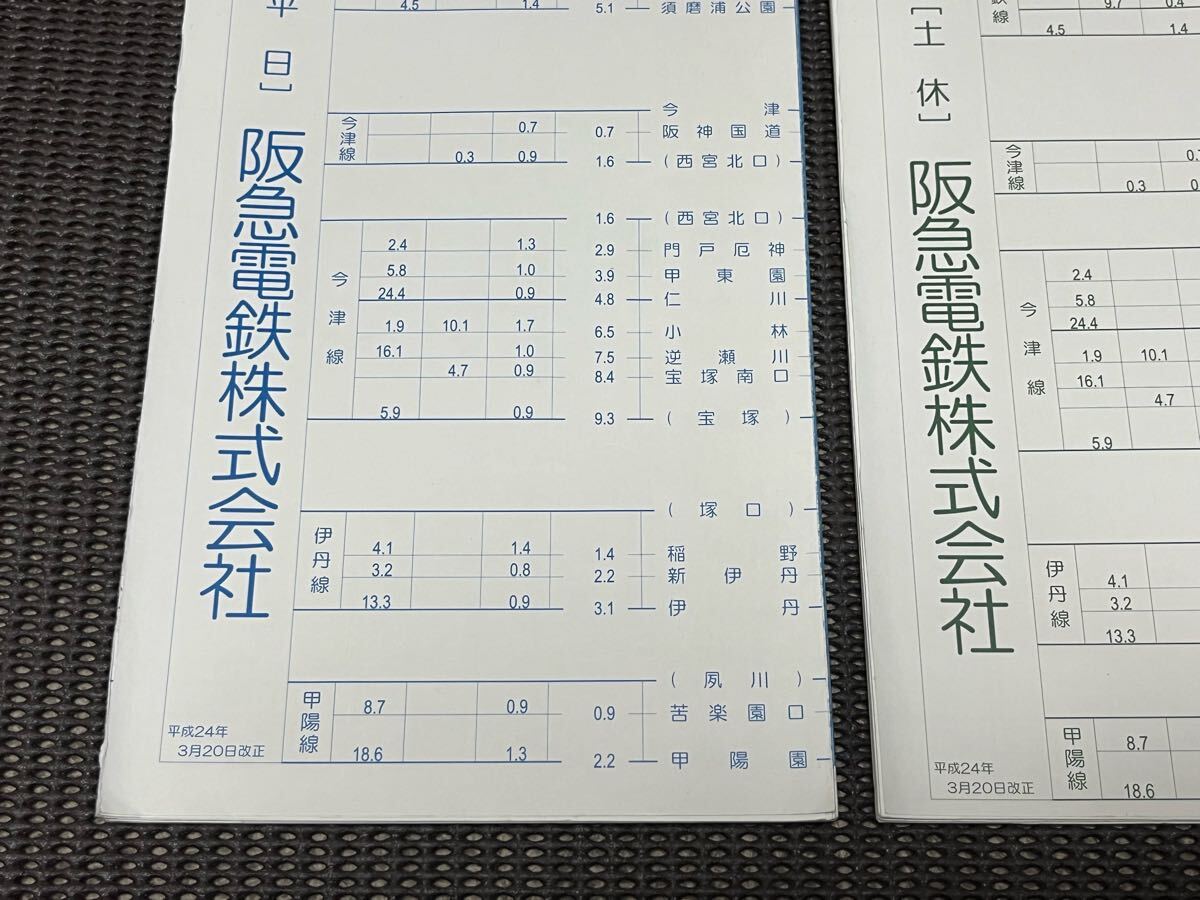 平日]
阪急電鉄株式会社
平成24年
3月20日改正
4.5 1.4 5.1 須磨浦公園
今津線
今津
0.7 0.7 阪神国道
0.3 0.9 1.6 (西宮北口)
今津線
1.6 (西宮北口)
2.4 1.3 2.9 門戸厄神
5.8 1.0 3.9 甲東園
24.4 0.9 4.8 仁川
1.9 10.1 1.7 6.5 小林
16.1 1.0 7.5 逆瀬川
4.7 0.9 8.4 宝塚南口
5.9 0.9 9.3 (宝塚)
伊丹線
(塚口)
4.1 1.4 1.4 稲野
3.2 0.8 2.2 新伊丹
13.3 0.9 3.1 伊丹
甲陽線
(夙川)
8.7 0.9 0.9 苦楽園口
18.6 1.3 2.2 甲陽園
[土休]
阪急電鉄株式会社
平成24年
3月20日改正
線
9.7 0.4
4.5 1.4
今津線
0.3
今津線
2.4
5.8
24.4
1.9 10.1
16.1
4.7
5.9
伊丹線
4.1
3.2
13.3
甲陽線
8.7
18.6